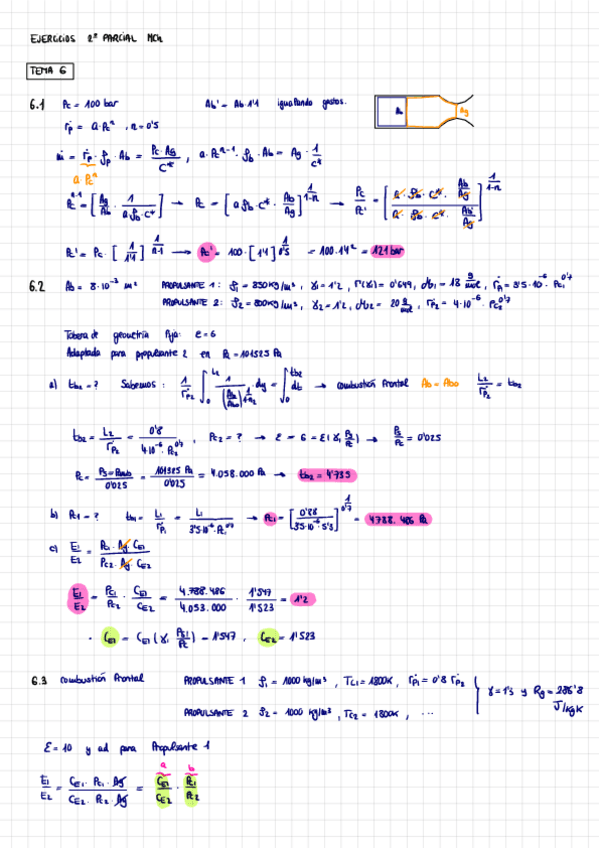 EJERCICIOS 2º PARCIAL MCH
TEMA 6
6.1 Pc = 100 bar Ab' = Ab·1'1 igualando gastos.
ṙp = a·Pcⁿ , n = 0'5
ṁ = ṙp·ρp·Ab = Pc·Ag / C* , a·Pcⁿ⁻¹·ρb·Ab = Ag·1/c*
a Pcⁿ
Pcⁿ⁻¹ = [Ag/Ab · 1/(aρb·C*)] → Pc = [aρb·C*·Ab/Ag]^(1/(1-n)) → Pc/Pc' = [(a·ρb·C*·Ab/Ag)/(a·ρb·C*·Ab'/Ag)]^(1/(1-n))
Pc' = Pc·[1/1'1]^(1/(n-1)) → Pc' = 100·[1'1]^(1/0'5) = 100·1'1² = 121 bar
Ag
6.2 PROPULSANTE 1: ρ1 = 850 kg/m³ , γ1 = 1'2 , Γ(γ) = 0'649
PROPULSANTE 2: ρ2 = 800 kg/m³ , γ2 = 1'2 , ṙp2 = 4·10⁻⁶·Pc2^0'7
Tobera de geometría fija: ε = 6
Adaptada para propulsante 2 en Pa = 101325 Pa
a) tb2 = ? Sabemos: → combustión frontal Ab = Ab0 L2/ṙp2 = tb2
tb2 = L2/ṙp2 = 0'8/(4·10⁻⁶·Pc2^0'7) , Pc2 = ? → ε = 6 = ε(γ, Ps/Pc) → Ps/Pc = 0'025
Pc = Ps=Pamb/0'025 = 101325 Pa/0'025 = 4.053.000 Pa →
b) Pc1 = ? tb1 = L1/ṙp1 = L1/(3'5·10⁻⁶·Pc1^0'7) → Pc1 = 4788.486 Pa
c) E1/E2 = Pc1·Ag·CE1 / Pc2·Ag·CE2
E1/E2 = Pc1/Pc2 · CE1/CE2 = 4.788.486/4.053.000 · 1'547/1'523 = 1'2
· CE1 = CE1(γ, Ps1/Pc) = 1'547 , CE2 = 1'523
6.3 combustión frontal PROPULSANTE 1 ρ1 = 1000 kg/m³ , Tc1 = 1800K , ṙp1 = 0'8 ṙp2
γ = 1'3 y Rg = 286'8 J/kgK
PROPULSANTE 2 ρ2 = 1000 kg/m³ , Tc2 = 1800K , ...
ε = 10 y ad para Propulsante 1
a b
E1/E2 = CE1·Pc1·Ag / CE2·Pc2·Ag = CE1/CE2 · Pc1/Pc2